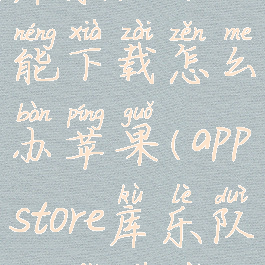 néng xià zài zěn me
能下载怎么
bàn píng guǒ
办苹果(app
kù lè duì
store库乐队